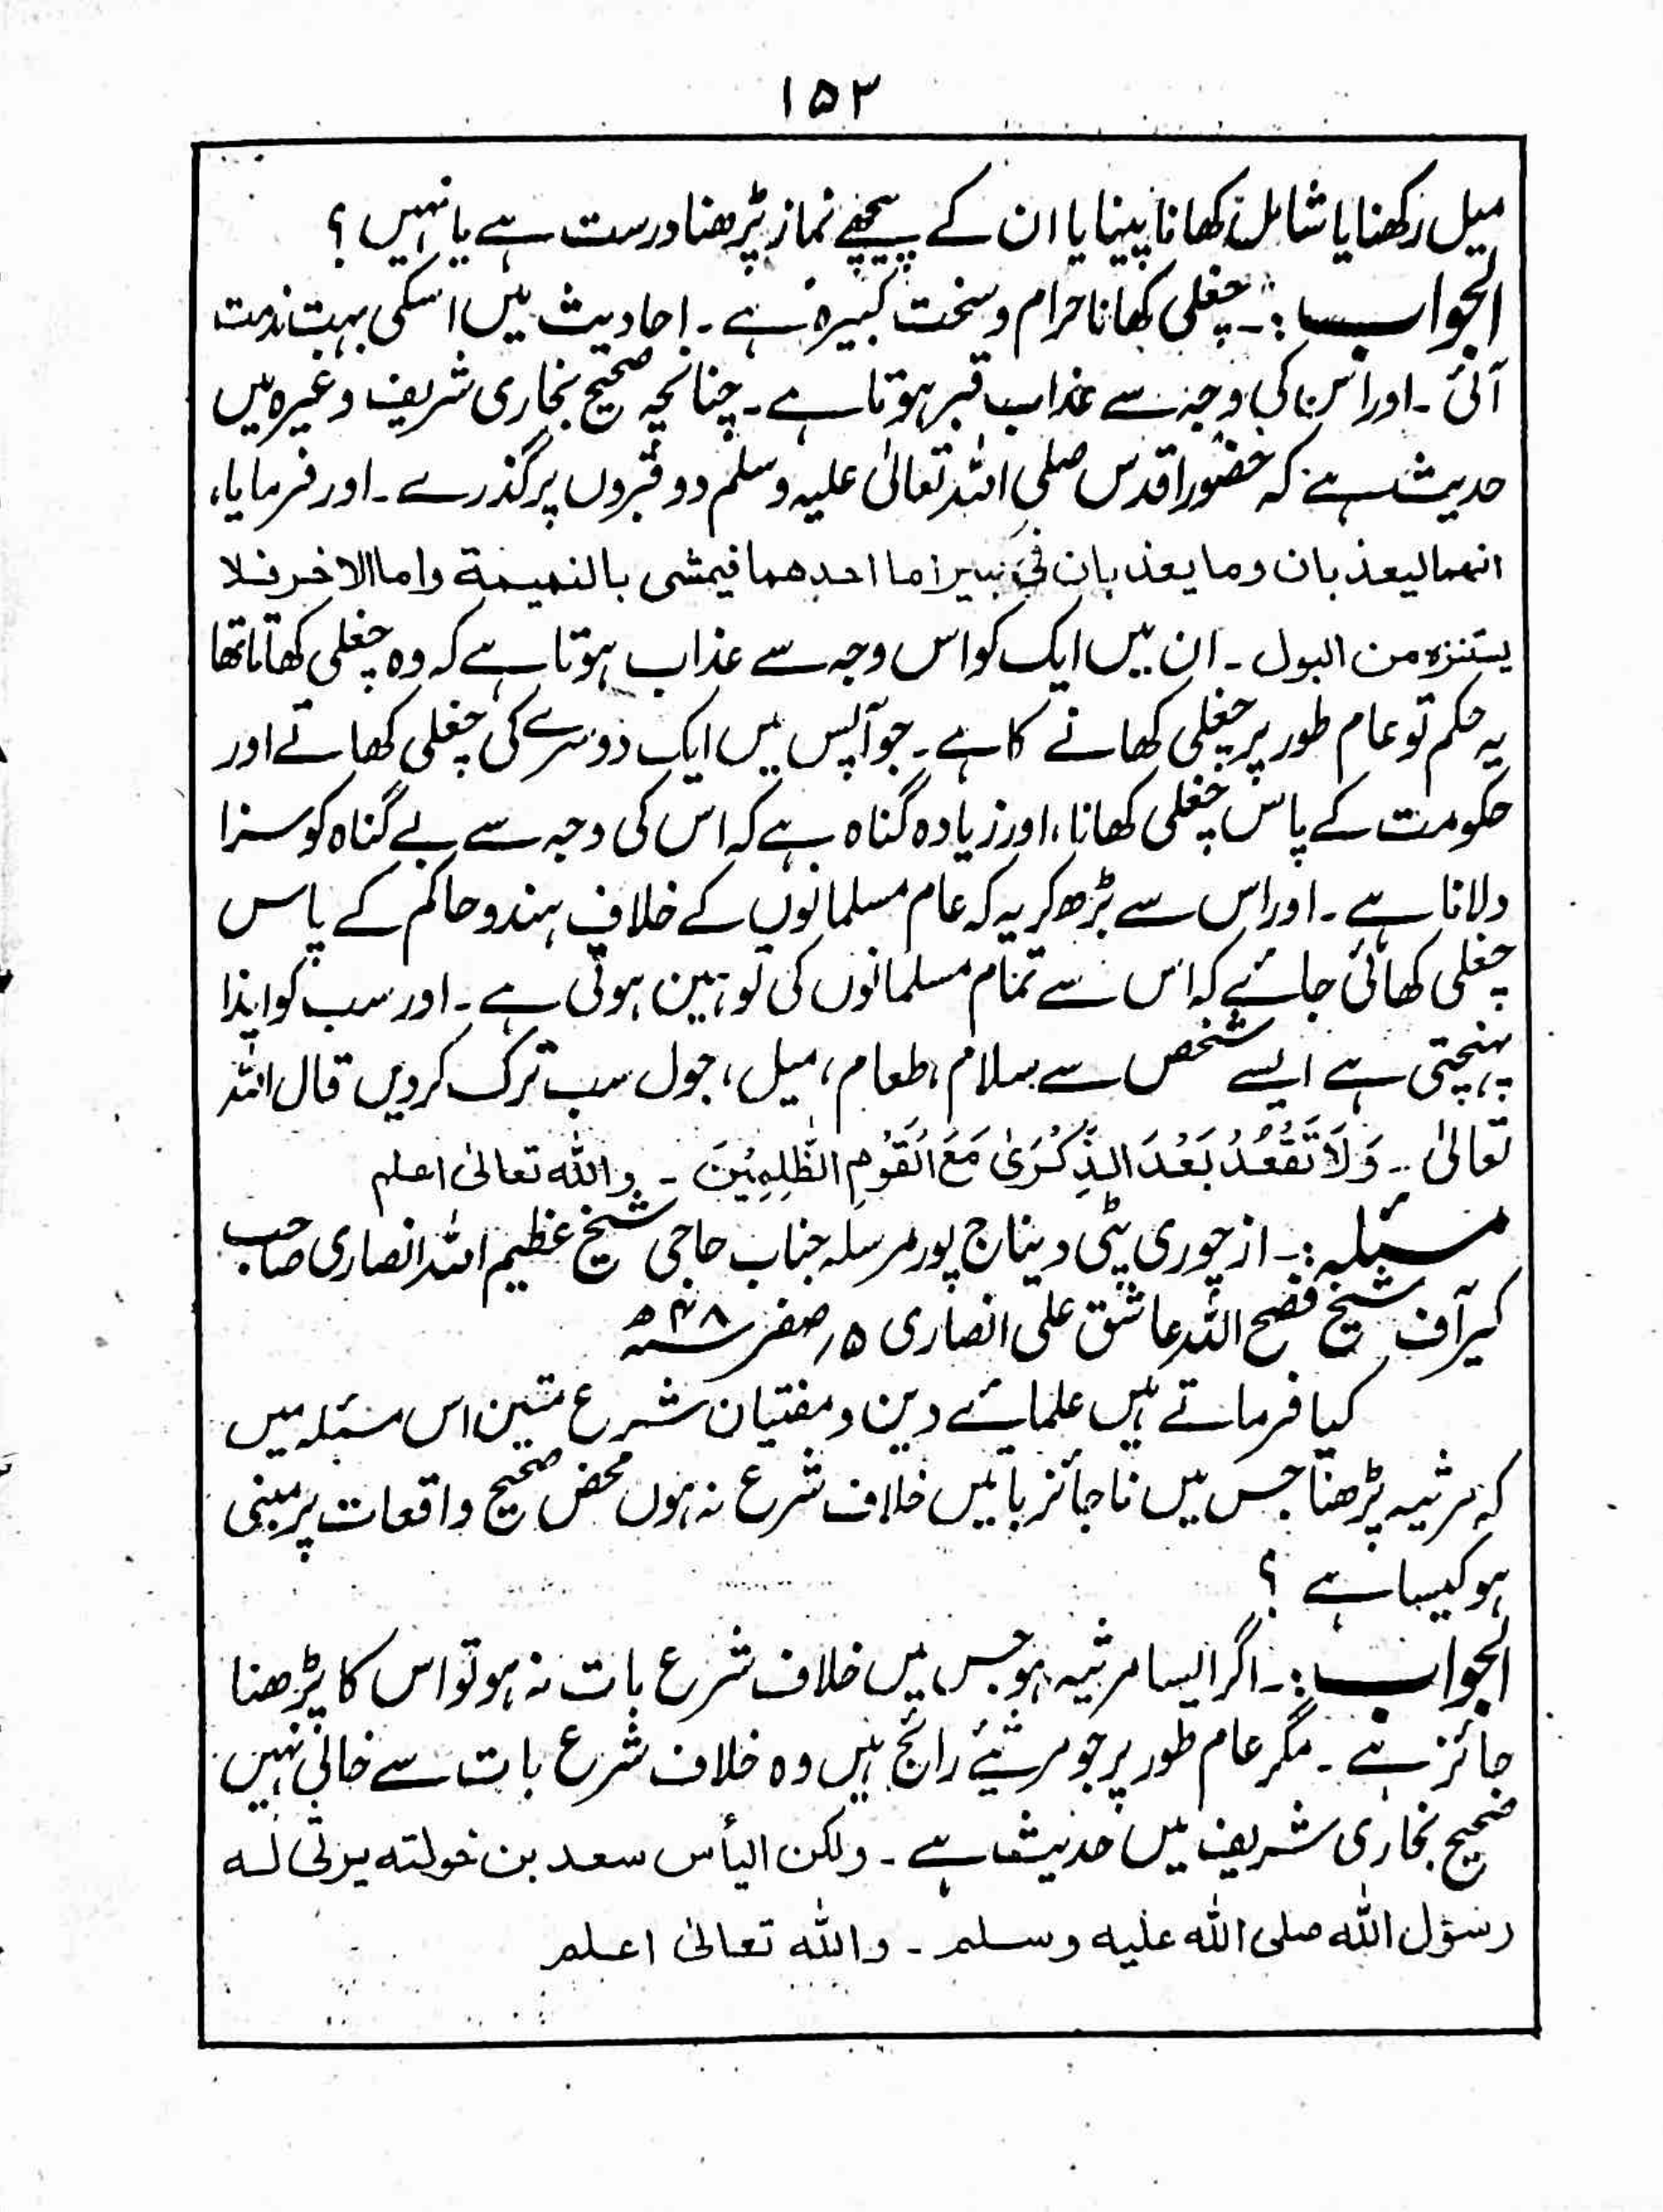 ۱۵۲
میل رکھنا یا شامل کھانا پینا یا ان کے پیچھے نماز پڑھنا درست ہے یا نہیں ؟
الجواب :۔ چغلی کھانا حرام و سخت کبیرہ ہے ۔ احادیث میں اسکی بہت مذمت
آئی ۔ اور اس کی وجہ سے عذاب قبر ہوتا ہے ۔ چنانچہ صحیح بخاری شریف وغیرہ میں
حدیث ہے کہ حضور اقدس صلی اللہ تعالیٰ علیہ وسلم دو قبروں پر گذرے ۔ اور فرمایا،
انھما لیعذبان وما یعذبان فی کبیر اما احدھما فیمشی بالنمیمۃ واما الاخر فلا
یستنزہ من البول ۔ ان میں ایک کو اس وجہ سے عذاب ہوتا ہے کہ وہ چغلی کھاتا تھا
یہ حکم تو عام طور پر چغلی کھانے کا ہے ۔ جو آپس میں ایک دوسرے کی چغلی کھاتے اور
حکومت کے پاس چغلی کھانا ، اور زیادہ گناہ ہے کہ اس کی وجہ سے بے گناہ کو سزا
دلانا ہے ۔ اور اس سے بڑھ کر یہ کہ عام مسلمانوں کے خلاف ہندو حاکم کے پاس
چغلی کھائی جائے کہ اس سے تمام مسلمانوں کی توہین ہوتی ہے ۔ اور سب کو ایذا
پہنچتی ہے ایسے شخص سے سلام ، طعام ، میل ، جول سب ترک کردیں قال اللہ
تعالیٰ ۔ وَلَا تَقْعُدْ بَعْدَ الذِّكْرَىٰ مَعَ الْقَوْمِ الظّٰلِمِیْنَ ۔ واللہ تعالیٰ اعلم
مسئلہ :۔ از چوری پٹی دیناج پور مرسلہ جناب حاجی شیخ عظیم اللہ انصاری صاحب
کیرآف شیخ فصیح اللہ عاشق علی انصاری ۵؍ صفر ۴۸ھ
کیا فرماتے ہیں علمائے دین و مفتیان شرع متین اس مسئلہ میں
کہ مرثیہ پڑھنا جس میں ناجائز باتیں خلاف شرع نہ ہوں محض صحیح واقعات پر مبنی
ہو کیسا ہے ؟
الجواب :۔ اگر ایسا مرثیہ ہو جس میں خلاف شرع بات نہ ہو تو اس کا پڑھنا
جائز ہے ۔ مگر عام طور پر جو مرثیئے رائج ہیں وہ خلاف شرع بات سے خالی نہیں
صحیح بخاری شریف میں حدیث ہے ۔ ولکن الیأس سعد بن خولتہ یرثی لہ
رسول اللہ صلی اللہ علیہ وسلم ۔ واللہ تعالیٰ اعلم